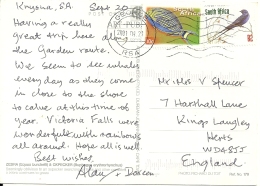 Knysna, SA. Sept 20
Having a really
great trip here along
the Garden route.
We seem to see whales
every day as they come
in close to the shore
to calve at this time
of year. Victoria Falls were
wonderful with rainbows
all around. Hope all is well
Best wishes
Alan & Doreen
South Africa
Mr & Mrs V Spencer
7 Harthall Lane
Kings Langley
Herts
WD4 8SS
England